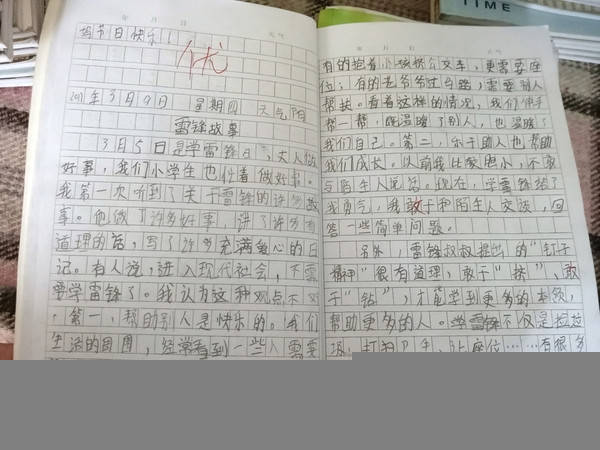 年 月 日 天气
节日快乐！
优
2011年3月9日 星期四 天气阴
雷锋故事
3月5日是学雷锋日，大人做
好事，我们小学生也忙着做好事。
我第一次听到了关于雷锋的许多故
事。他做了许多好事，讲了许多有
道理的话，写了许多充满爱心的日
记。有人说，进入现代社会，不需
要学雷锋了。我认为这种观点不对
，第一，帮助别人是快乐的。我们
生活的周围，经常看到一些人需要
年 月 日 天气
有的抱着小孩挤公交车，更需要座
位；有的老爷爷过马路，需要别人
帮扶。看着这样的情况，我们伸手
帮一帮，既温暖了别人，也温暖了
我们自己。第二，乐于助人也帮助
我们成长。以前我比较胆小，不敢
与陌生人说话。现在，学雷锋给了
我勇气，我敢于和陌生人交谈，回
答一些简单问题。
另外，雷锋叔叔提出的“钉子
精神”很有道理，敢于“挤”、敢
于“钻”，才能学到更多的本领，
帮助更多的人。学雷锋不仅是捡垃
圾，打扫卫生，让座位……有很多
TIME